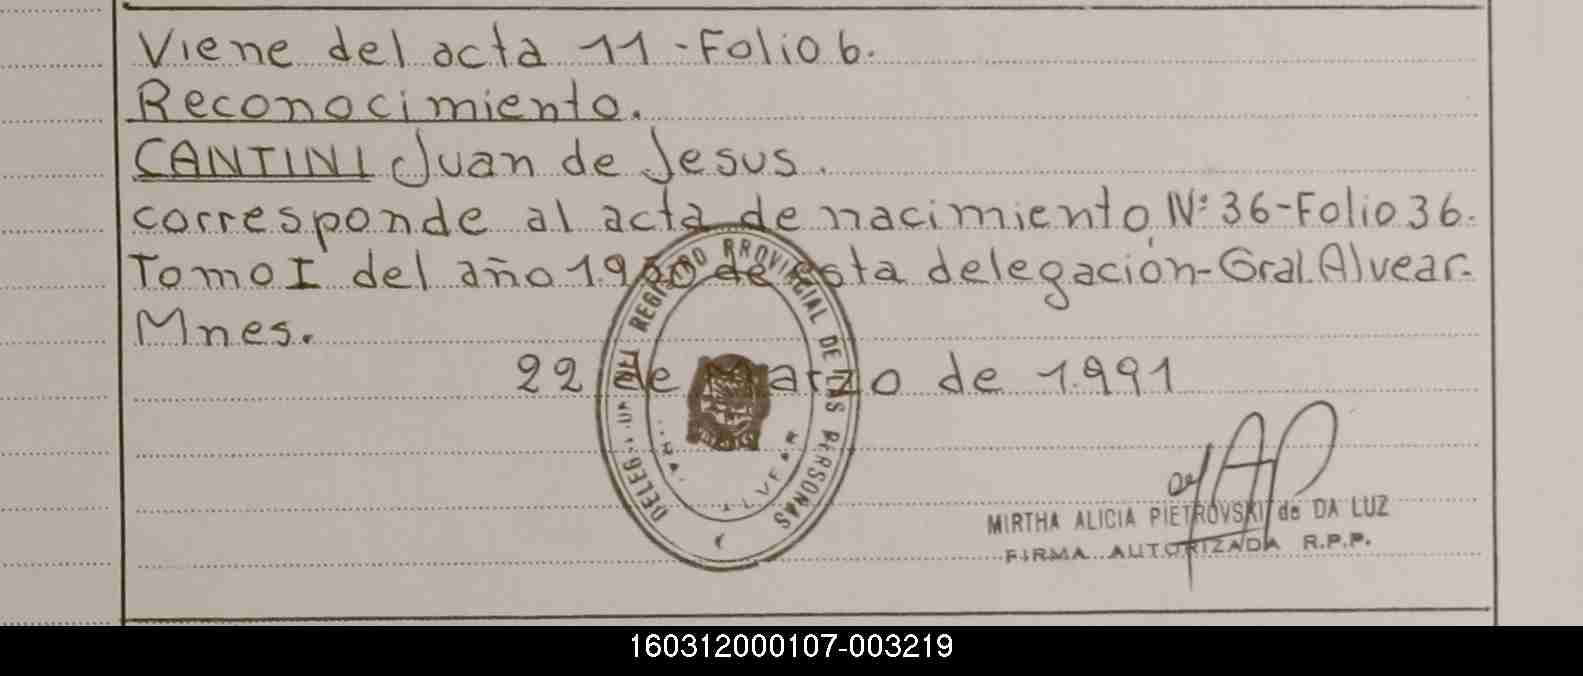 Viene del acta 11-Folio 6.
Reconocimiento.
CANTINI Juan de Jesus.
corresponde al acta de nacimiento Nº 36-Folio 36.
Tomo I del año de esta delegación-Gral. Alvear-
Mnes.
22 de Marzo de 1.991
REGISTRO PROVINCIAL DE LAS PERSONAS
MIRTHA ALICIA PIETROVSKI de DA LUZ
FIRMA AUTORIZADA R.P.P.
160312000107-003219